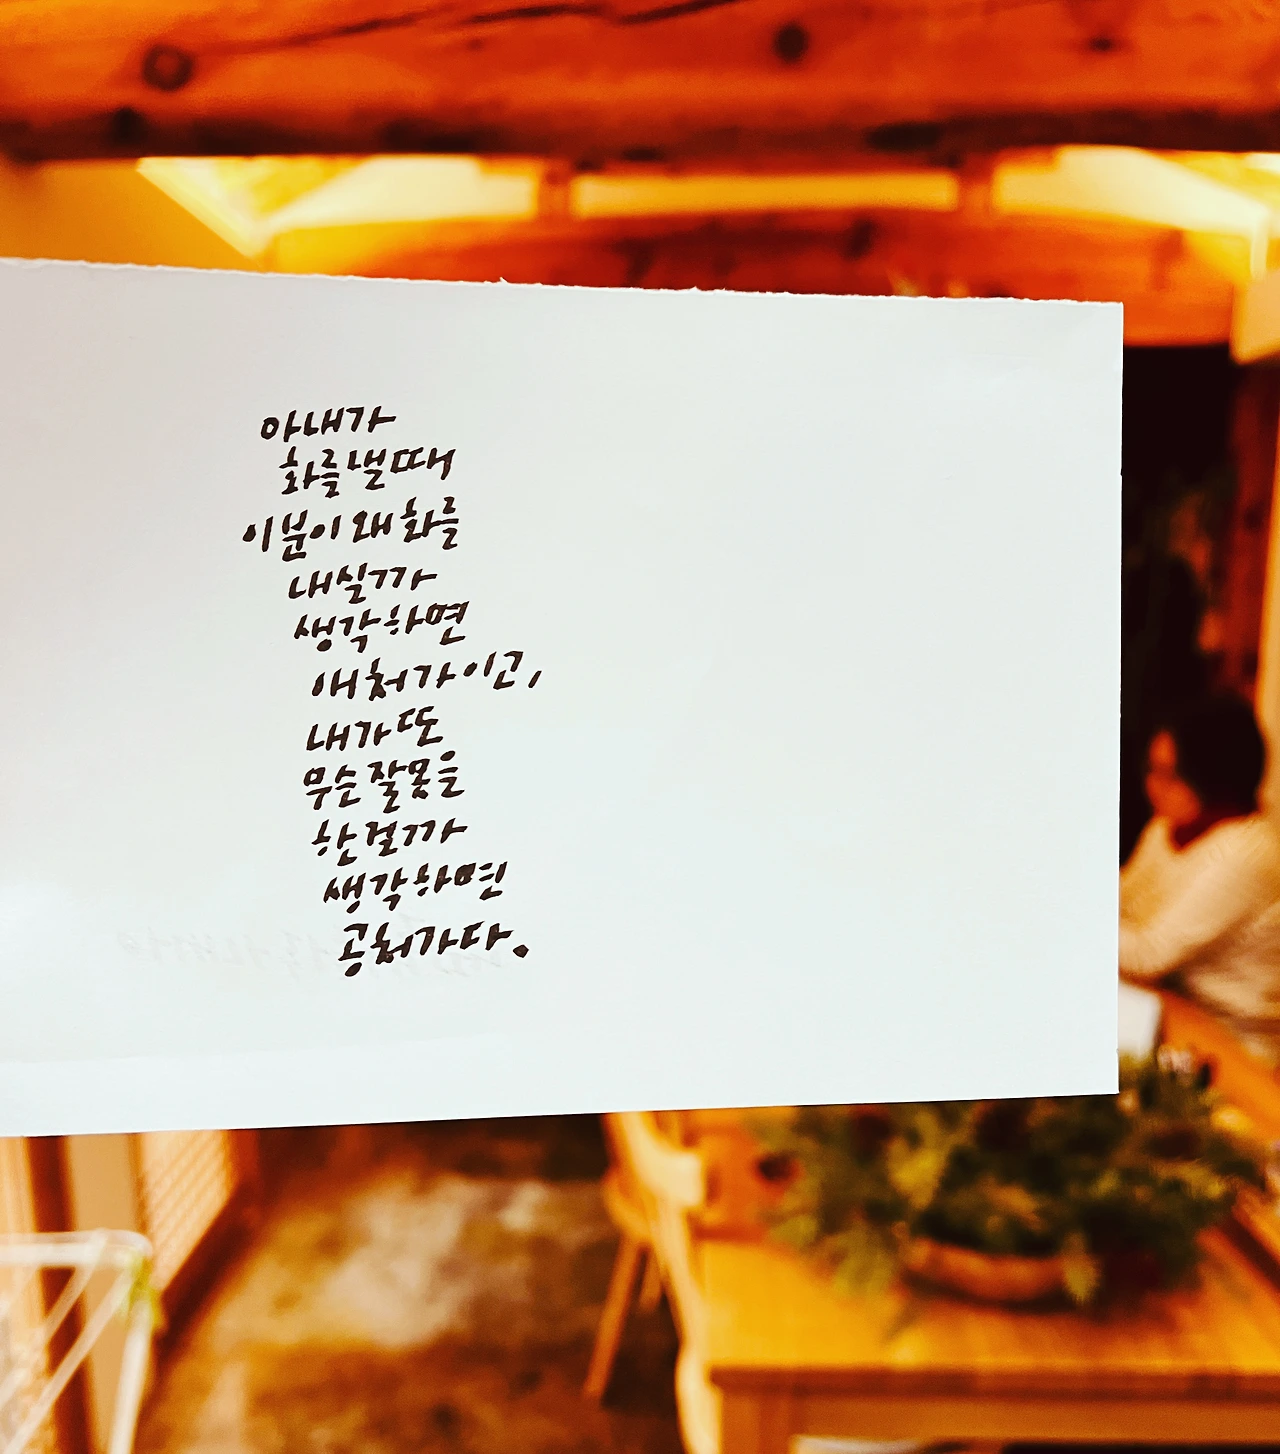 아내가
화를 낼 때
이 분이 왜 화를
내실까
생각하면
애처가이고,
내가 또
무슨 잘못을
한 걸까
생각하면
공처가다.